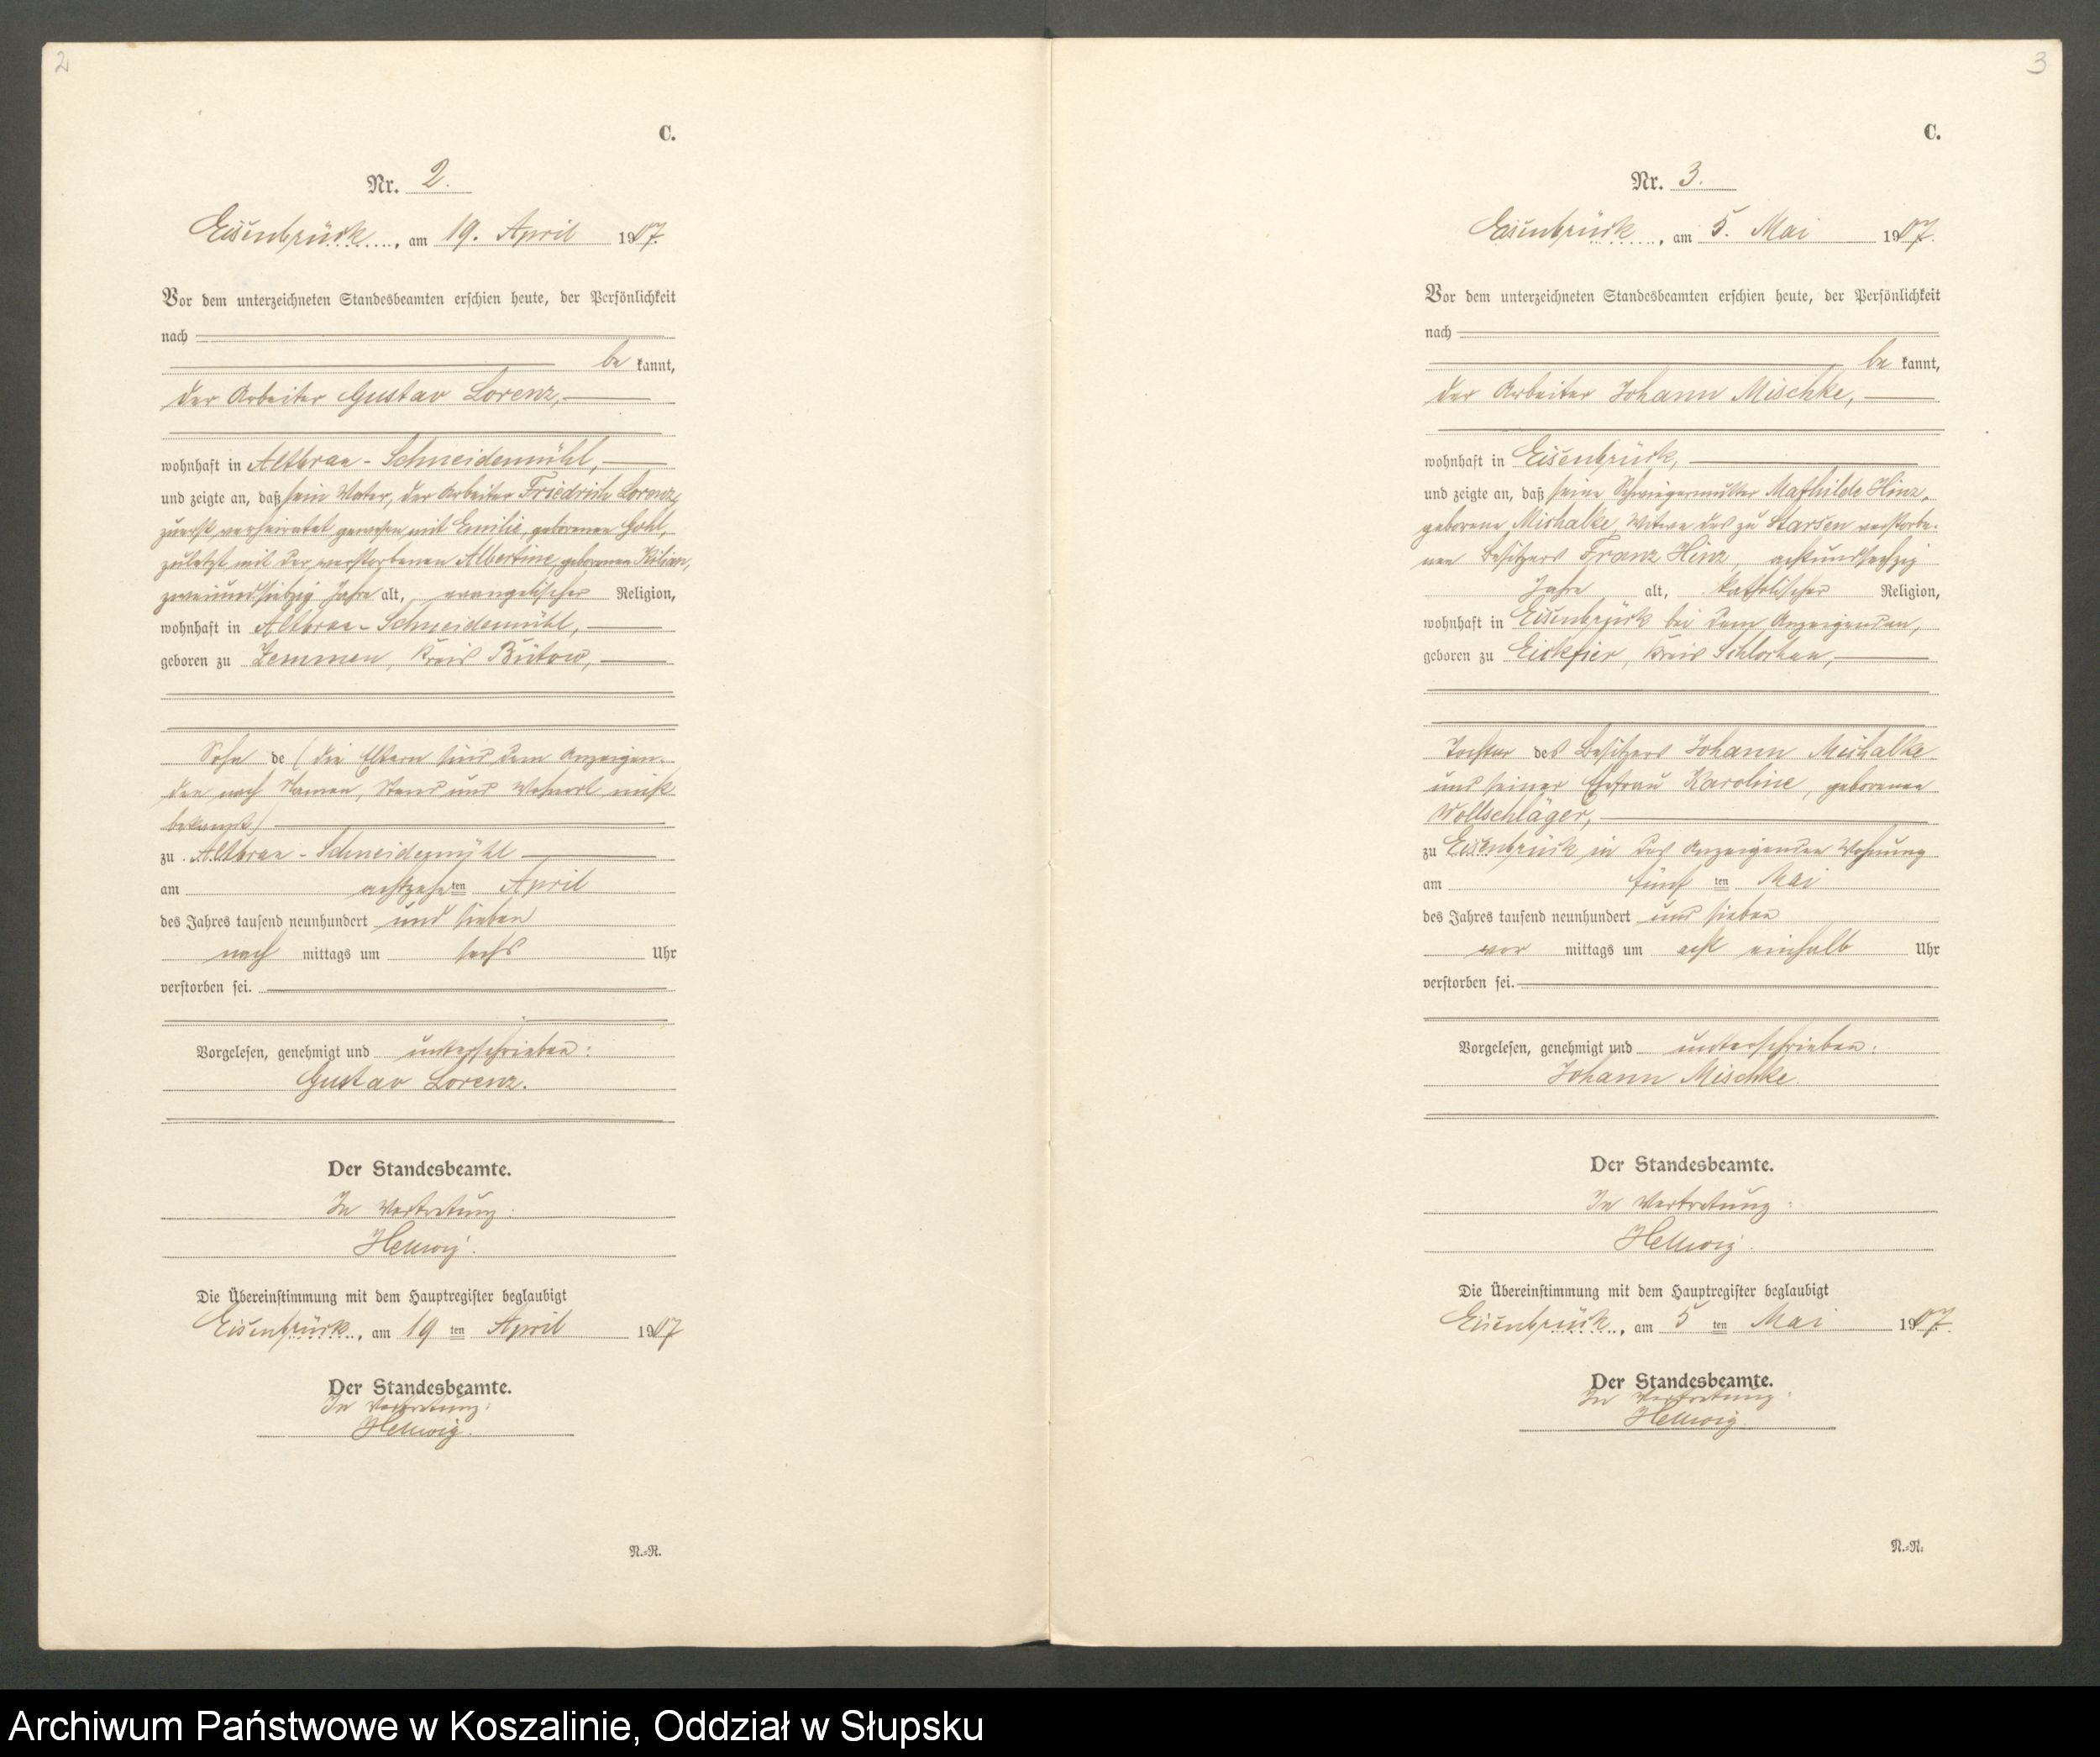 2
C.
Nr. 2.
Eisenbrück, am 19. April 1907.
Vor dem unterzeichneten Standesbeamten erschien heute, der Persönlichkeit
nach
be kannt,
der Arbeiter Gustav Lorenz,
wohnhaft in Altbraa-Schneidemühl,
und zeigte an, daß sein Vater, der Arbeiter Friedrich Lorenz,
zuerst verheiratet gewesen mit Emilie, geborenen Gohl,
zuletzt mit der verstorbenen Albertine, geborenen Kilian,
zweiundsiebzig Jahre alt, evangelischer Religion,
wohnhaft in Altbraa-Schneidemühl,
geboren zu Zemmen, Kreis Bütow,
Sohn de (die Eltern sind dem Anzeigen-
den nach Namen, Stand und Wohnort nicht
bekannt)
zu Altbraa-Schneidemühl
am achtzehn ten April
des Jahres tausend neunhundert und sieben
nach mittags um sechs Uhr
verstorben sei.
Vorgelesen, genehmigt und unterschrieben:
Gustav Lorenz.
Der Standesbeamte.
In Vertretung:
Hellwig.
Die Übereinstimmung mit dem Hauptregister beglaubigt
Eisenbrück, am 19 ten April 1907
Der Standesbeamte.
In Vertretung:
Hellwig.
N.=R.
3
C.
Nr. 3.
Eisenbrück, am 5. Mai 1907.
Vor dem unterzeichneten Standesbeamten erschien heute, der Persönlichkeit
nach
be kannt,
der Arbeiter Johann Mischke,
wohnhaft in Eisenbrück,
und zeigte an, daß seine Schwiegermutter Mathilde Hinz,
geborene Michalke, Witwe des zu Starsen verstorbe-
nen Besitzers Franz Hinz, achtundsechzig
Jahre alt, katholischer Religion,
wohnhaft in Eisenbrück bei dem Anzeigenden,
geboren zu Eickfier, Kreis Schlochau,
Tochter des Besitzers Johann Michalke
und seiner Ehefrau Karoline, geborenen
Wollschläger,
zu Eisenbrück in des Anzeigenden Wohnung
am fünf ten Mai
des Jahres tausend neunhundert und sieben
vor mittags um acht einhalb Uhr
verstorben sei.
Vorgelesen, genehmigt und unterschrieben:
Johann Mischke.
Der Standesbeamte.
In Vertretung:
Hellwig.
Die Übereinstimmung mit dem Hauptregister beglaubigt
Eisenbrück, am 5 ten Mai 1907.
Der Standesbeamte.
In Vertretung:
Hellwig.
N.=R.
Archiwum Państwowe w Koszalinie, Oddział w Słupsku